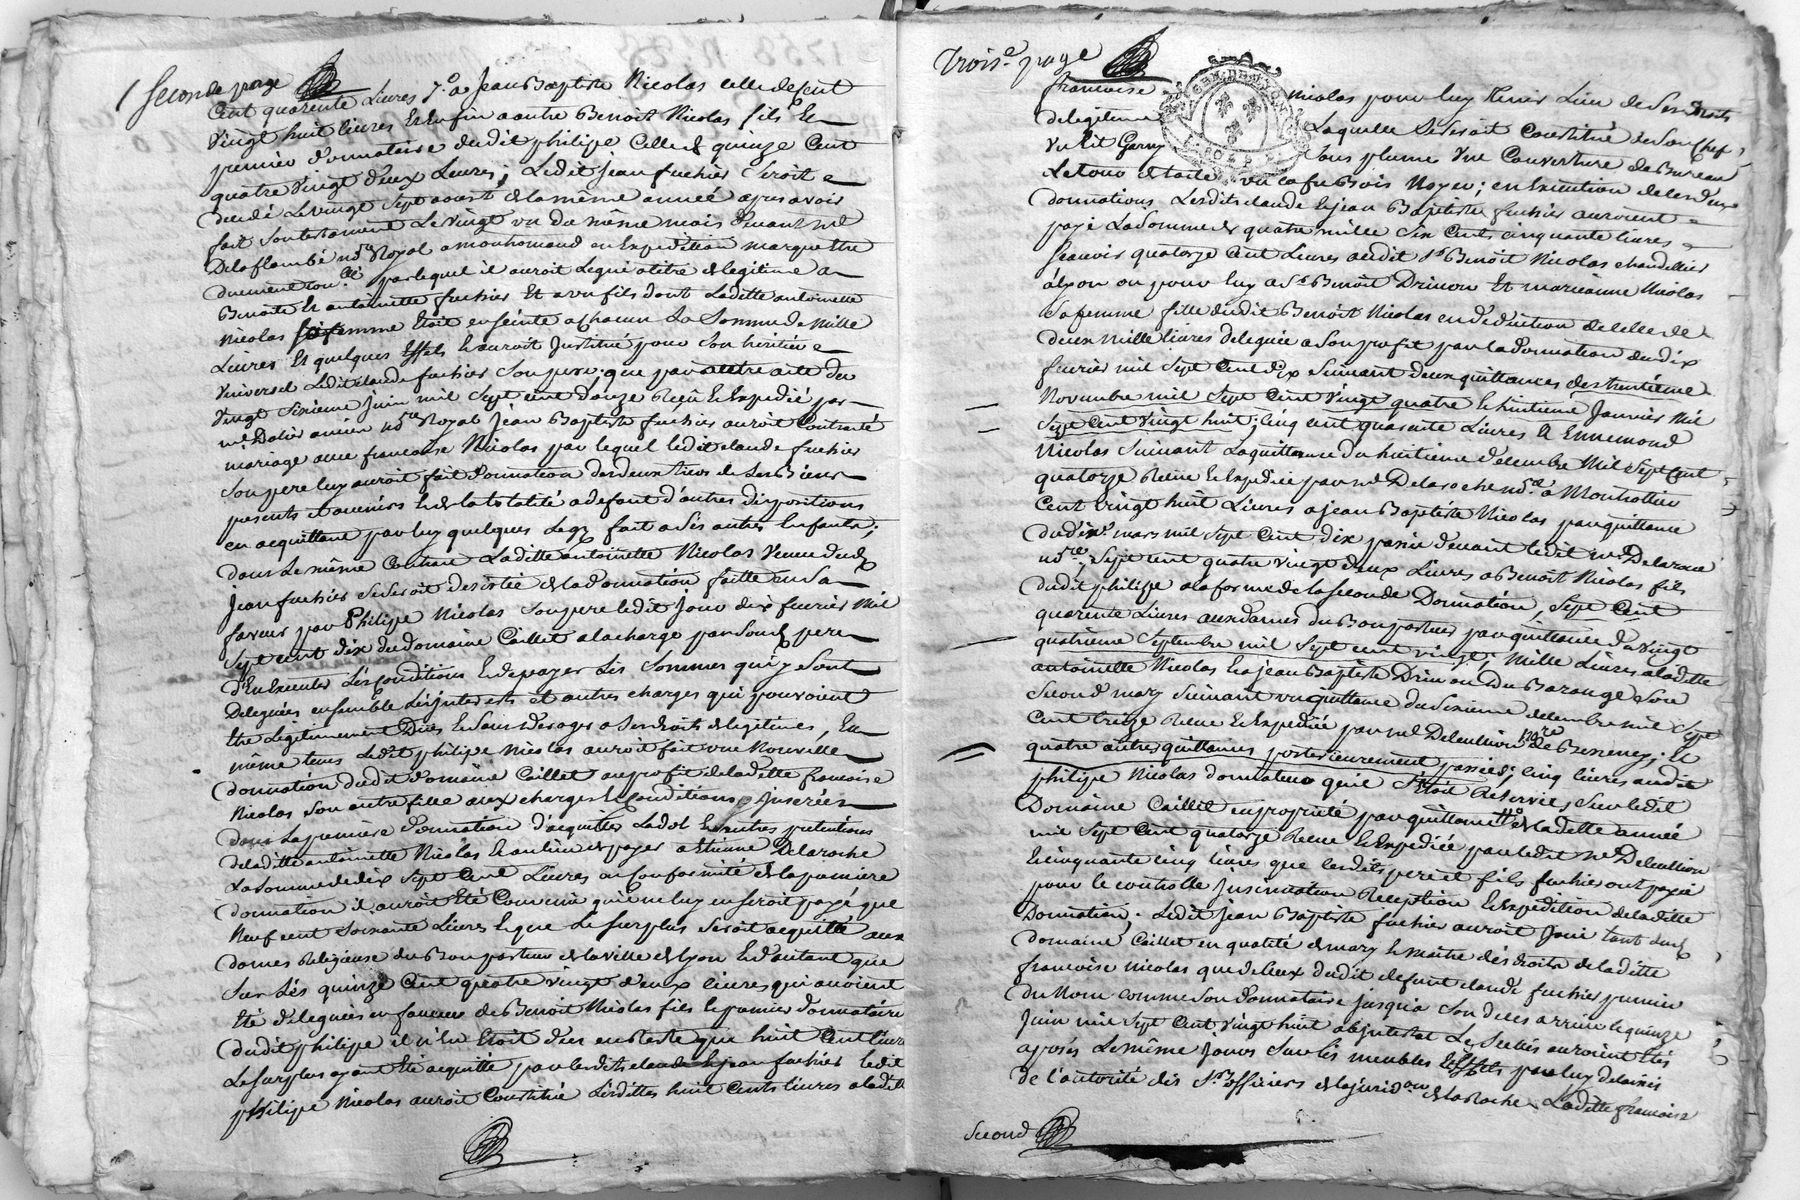 Seconde page
Cent quarente Livres 7.° a Jean Baptiste Nicolas celle de cent
vingt huit livres Et Enfin a autre Benoit Nicolas fils Et
premier donnataire dudit philipe Celle de quinze Cent
quatre vingt deux Livres; Ledit Jean fuchier seroit
decedé Le vingt sept aoust de la même année apres avoir
fait son testament Le vingt un du même mois devant me
Delaflambé nore Royal a en Expedition marque Etre
duement par lequel il auroit Legué a titre de legitime a
Benoite Et antoinette fuchier Et a un fils dont Laditte antoinette
Nicolas sa femme Etoit enseinte a chacun La Somme de Mille
Livres Et quelques Effets Et auroit Institué pour son heritier
universel Ledit claude fuchier son pere. que par autre acte du
vingt sixieme Juin mil sept cent douze Reçû Et Expedié par
me ancien nore Royal Jean Baptiste fuchier auroit Contracté
mariage avec francoise Nicolas par lequel ledit claude fuchier
son pere luy auroit fait donnation des deux tiers de ses Biens
presents et avenirs Et de la totalité a defaut d'autres dispositions
en acquittant par luy quelques Legz fait a ses autres Enfants;
dans Le même Contrat Laditte antoinette Nicolas veuve dudt
Jean fuchier se seroit desistée de la donnation faitte en sa
faveur par Philipe Nicolas son pere ledit Jour dix fevrier Mil
sept cent dix du domaine Caillet a la charge par sond. pere
d'En Executer Les Conditions Et de payer Les Sommes qui y sont
Deleguées ensemble Les interests et autres charges qui pouvoient
Etre legitimement Dües Et sans deroger a ses droits de legitimes, En
même tems Ledit philipe Nicolas auroit fait une Nouvelle
donnation dudit domaine Caillet au profit de laditte francoise
Nicolas son autre fille aux charges Et Conditions Inserées
dans La premiere donnation d'acquitter La dot Et autres pretentions
de laditte antoinette Nicolas Et au lieu de payer a Etienne Delaroche
La somme de dix sept Cent Livres en Conformité de la premiere
donnation il auroit Eté Convenu qu'il ne luy en seroit payé que
Neuf cent soixante Livres Et que Le surplus seroit acquitté aux
dames Religieuse du Bon pasteur de la ville de Lyon Et d'autant que
sur Les quinze Cent quatre vingt deux Livres qui avoient
Eté deleguées en faveur de Benoit Nicolas fils Et premier donnataire
dudit philipe il n'En Etoit deu en Reste que huit Cent Livres
Le surplus ayant Eté acquitté par lesdits claude Et Jean fuchier ledit
philipe Nicolas auroit Constitué Lesdittes huit Cents livres a laditte
Trois.e page
francoise Nicolas pour luy tenir Lieu de ses droits
de legitime Laquelle se seroit Constitué de son Chef,
un Lit Garny sous plume une Couverture de Bureau
Le tour de toile un cofre Bois Noyer; en Execution de les deux
donnations Lesdits claude Et jean Baptiste fuchier auroient
payé La Somme de quatre mille six Cents cinquante livres
sçavoir quatorze Cent Livres audit sr Benoit Nicolas chandellier
a lyon ou pour luy a sr Benoit Drivon Et marianne Nicolas
sa femme fille dudit Benoit Nicolas en deduction de celle de
deux mille livres deleguée a son profit par la donnation du dix
fevrier mil sept Cent dix suivant deux quittances des trentieme
Novembre mil sept Cent vingt quatre Et huitieme Janvier Mil
sept Cent vingt huit; Cinq cent quarente Livres a Ennemond
Nicolas suivant La quittance du huitieme decembre Mil sept Cent
quatorze Reçue Et Expediée par me Delaroche nore a Montrottier
Cent vingt huit Livres a jean Baptiste Nicolas par quittance
du mars mil sept Cent dix passée devant ledit me Delaroche
nore, sept cent quatre vingt deux Livres a Benoit Nicolas fils
dudit philipe a la forme de la seconde Donnation, sept Cent
quarente Livres aux dames du Bon pasteur par quittance du vingt
quatrieme Septembre mil sept cent vingt; Mille Livres a laditte
antoinette Nicolas Et a jean Baptiste Drivon du Barange son
second mary suivant un quittance du sixieme decembre mil sept
Cent treize Reçue Et Expediée par me nore de Bessenay; Et
quatre autres quittances posterieurement passées; cinq livres audit
philipe Nicolas donnateur qu'il s'Etoit Reservée, sur ledit
Domaine Caillet en proprieté par quittance de laditte année
mil sept Cent quatorze Reçue Et Expediée par ledit me
Et cinquante cinq livres que lesdits pere et fils fuchier ont payée
pour le controlle Insinuation Reception Et Expedition de laditte
Donnation; Ledit Jean Baptiste fuchier auroit joui tant dud.
domaine Caillet en qualité de mary Et maitre des droits de laditte
francoise Nicolas que de ceux dudit defunt claude fuchier premier
du Nom comme son donnataire jusqu'a son deces arrivé le quinze
Juin mil sept Cent vingt huit ab intestat Les scellés auroient Eté
aposés Le même Jours sur les meubles Et Effets par luy delaissés
de l'autorité des srs officiers de la jurid.on de la Roche. Laditte francoise
Second
GEN. DE LYON